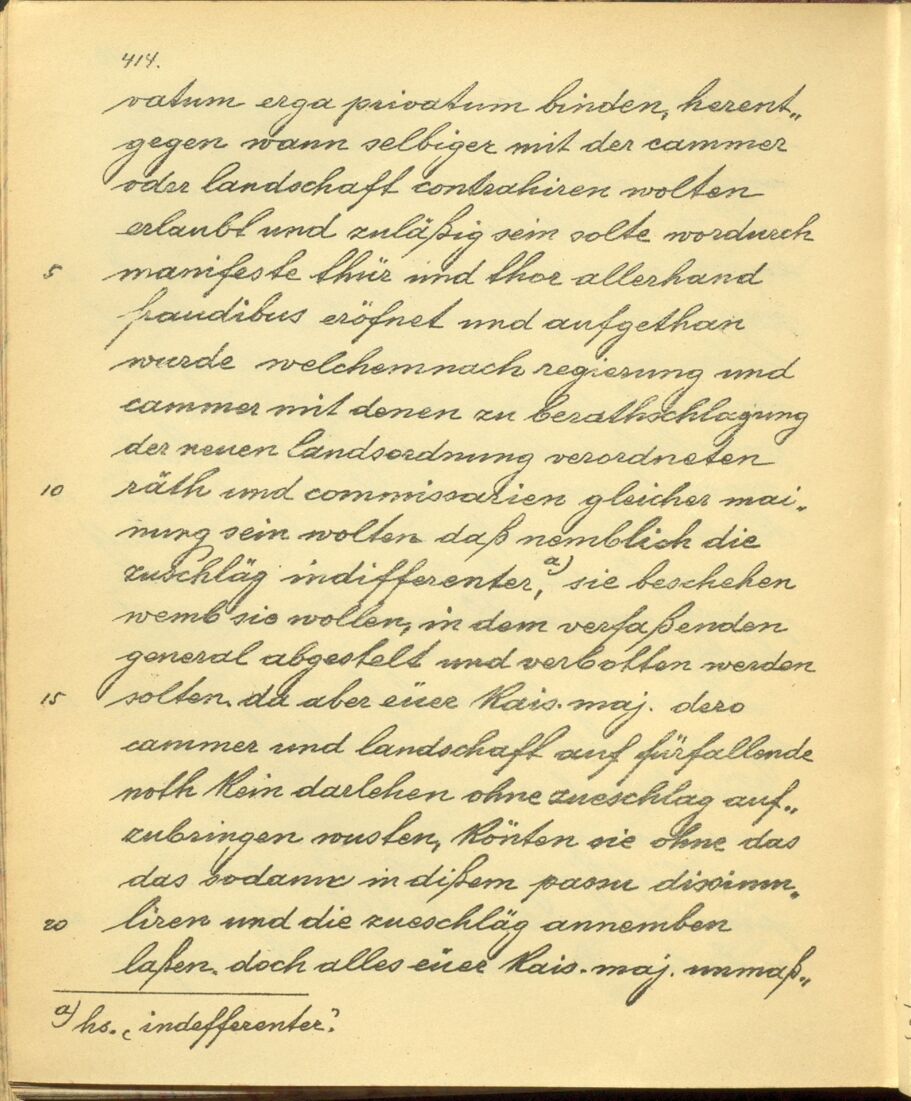 414.
vatum erga privatum binden, herent„
gegen wann selbiger mit der cammer
oder landschaft contrahiren wolten
erlaubt und zuläßig sein solte wordurch
5 manifeste thür und thor allerhand
fraudibus eröfnet und aufgethan
wurde welchemnach regierung und
cammer mit denen zu berathschlagung
der neuen landsordnung verordneten
10 räth und commissarien gleicher mai„
nung sein wolten daß nemblich die
zuschläg indifferenter,a) sie beschehen
wemb sie wollen, in dem verfaßenden
general abgestelt und verbotten werden
15 solten. da aber eüer kais. maj. dero
cammer und landschaft auf fürfallende
noth kein darlehen ohne zueschlag auf„
zubringen wusten, könten sie ohne das
das sodann in dißem passu dissimu„
20 liren und die zueschläg annemben
laßen. doch alles eüer kais. maj. unmaß„
a) hs. ‚indefferenter‘.